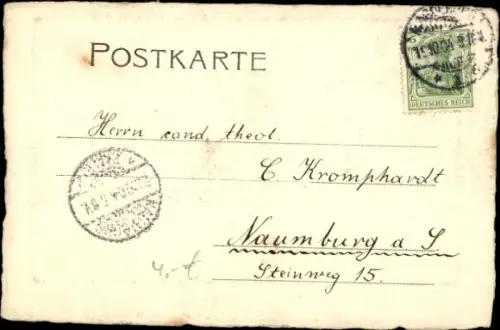 POSTKARTE
DEUTSCHES REICH
Herrn cand. theol.
C. Kromphardt
Naumburg a S.
Steinweg 15.
4,- €